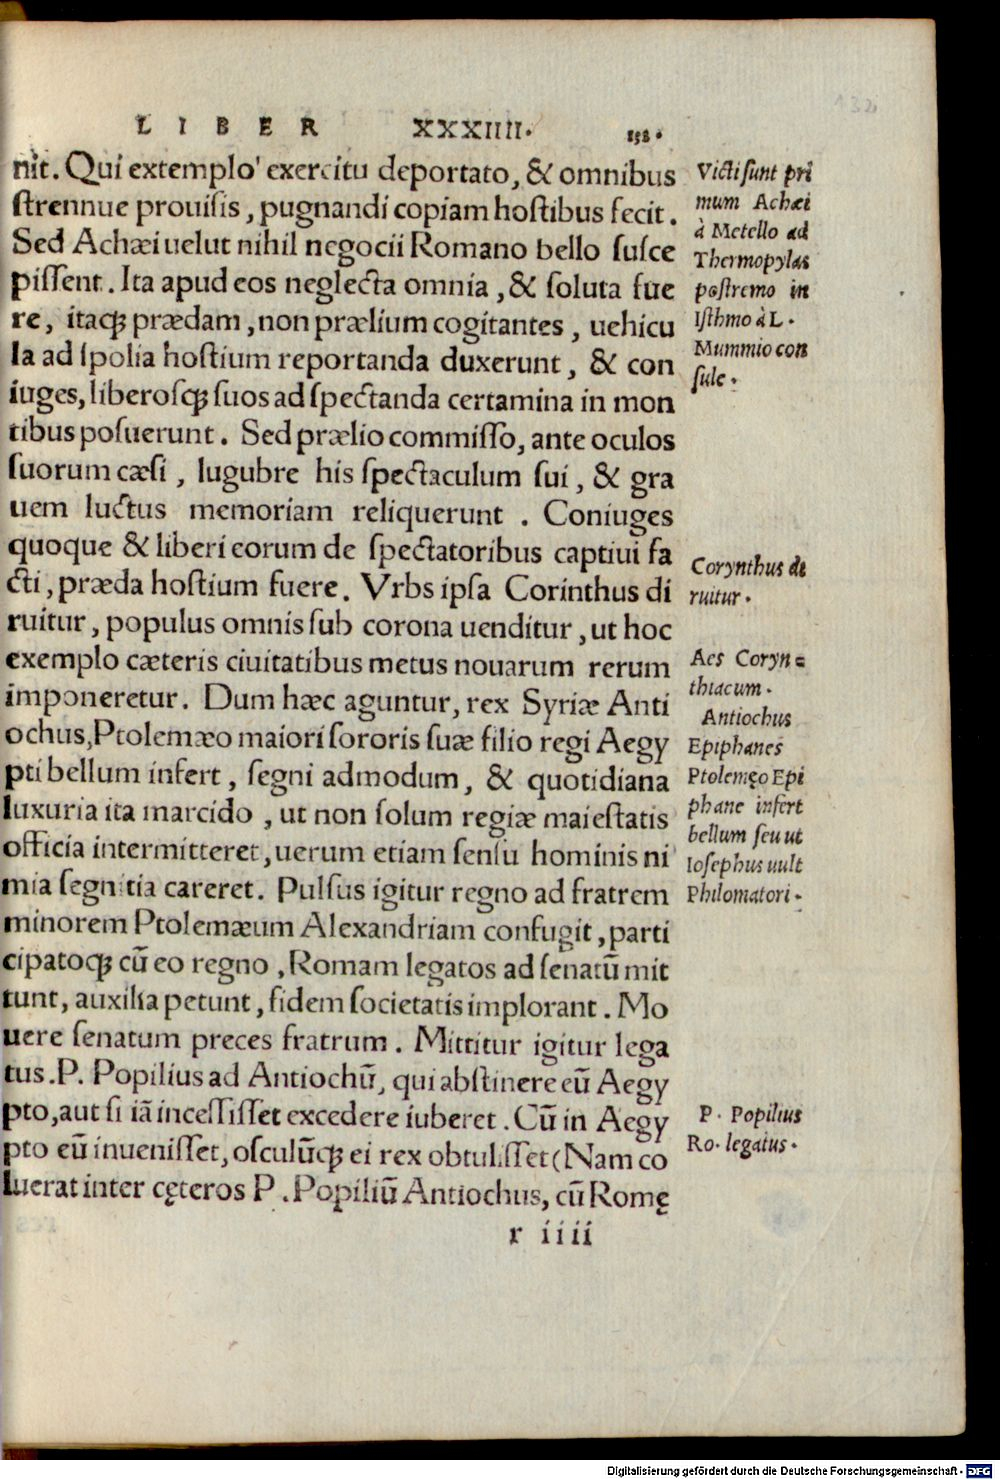 LIBER XXXIIII. 138.
nit. Qui extemplo' exercitu deportato, & omnibus
ſtrennue prouiſis, pugnandi copiam hoſtibus fecit.
Sed Achæi uelut nihil negocii Romano bello ſuſce
piſſent. Ita apud eos neglecta omnia, & ſoluta fue
re, itaqꝫ prædam, non prælium cogitantes, uehicu
la ad ſpolia hoſtium reportanda duxerunt, & con
iuges, liberoſqꝫ ſuos ad ſpectanda certamina in mon
tibus poſuerunt. Sed prælio commiſſo, ante oculos
ſuorum cæſi, lugubre his ſpectaculum ſui, & gra
uem luctus memoriam reliquerunt. Coniuges
quoque & liberi eorum de ſpectatoribus captiui fa
cti, præda hoſtium fuere. Vrbs ipſa Corinthus di
ruitur, populus omnis ſub corona uenditur, ut hoc
exemplo cæteris ciuitatibus metus nouarum rerum
imponeretur. Dum hæc aguntur, rex Syriæ Anti
ochus, Ptolemæo maiori ſororis ſuæ filio regi Aegy
pti bellum infert, ſegni admodum, & quotidiana
luxuria ita marcido, ut non ſolum regiæ maieſtatis
officia intermitteret, uerum etiam ſenſu hominis ni
mia ſegnitia careret. Pulſus igitur regno ad fratrem
minorem Ptolemæum Alexandriam confugit, parti
cipatoqꝫ cũ eo regno, Romam legatos ad ſenatũ mit
tunt, auxilia petunt, fidem ſocietatis implorant. Mo
uere ſenatum preces fratrum. Mittitur igitur lega
tus. P. Popilius ad Antiochũ, qui abſtinere eũ Aegy
pto, aut ſi iã inceſſiſſet excedere iuberet. Cũ in Aegy
pto eũ inueniſſet, oſculũqꝫ ei rex obtuliſſet (Nam co
luerat inter cęteros P. Popiliũ Antiochus, cũ Romę
r iiii
Victi ſunt pri
mum Achæi
à Metello ad
Thermopylas
poſtremo in
Iſthmo à L.
Mummio con
ſule.
Corynthus de
ruitur.
Aes Coryn=
thiacum.
Antiochus
Epiphanes
Ptolemęo Epi
phane infert
bellum ſeu ut
Ioſephus uult
Philomatori.
P. Popilius
Ro. legatus.
Digitalisierung gefördert durch die Deutsche Forschungsgemeinschaft - DFG